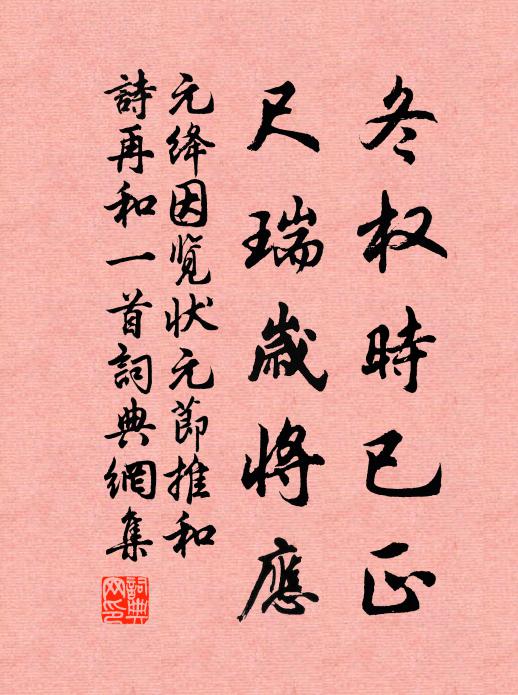 冬权時已正
尺瑞歲将應
元绛因览状元節推和
詩再和一首詞典網集
詞典網印